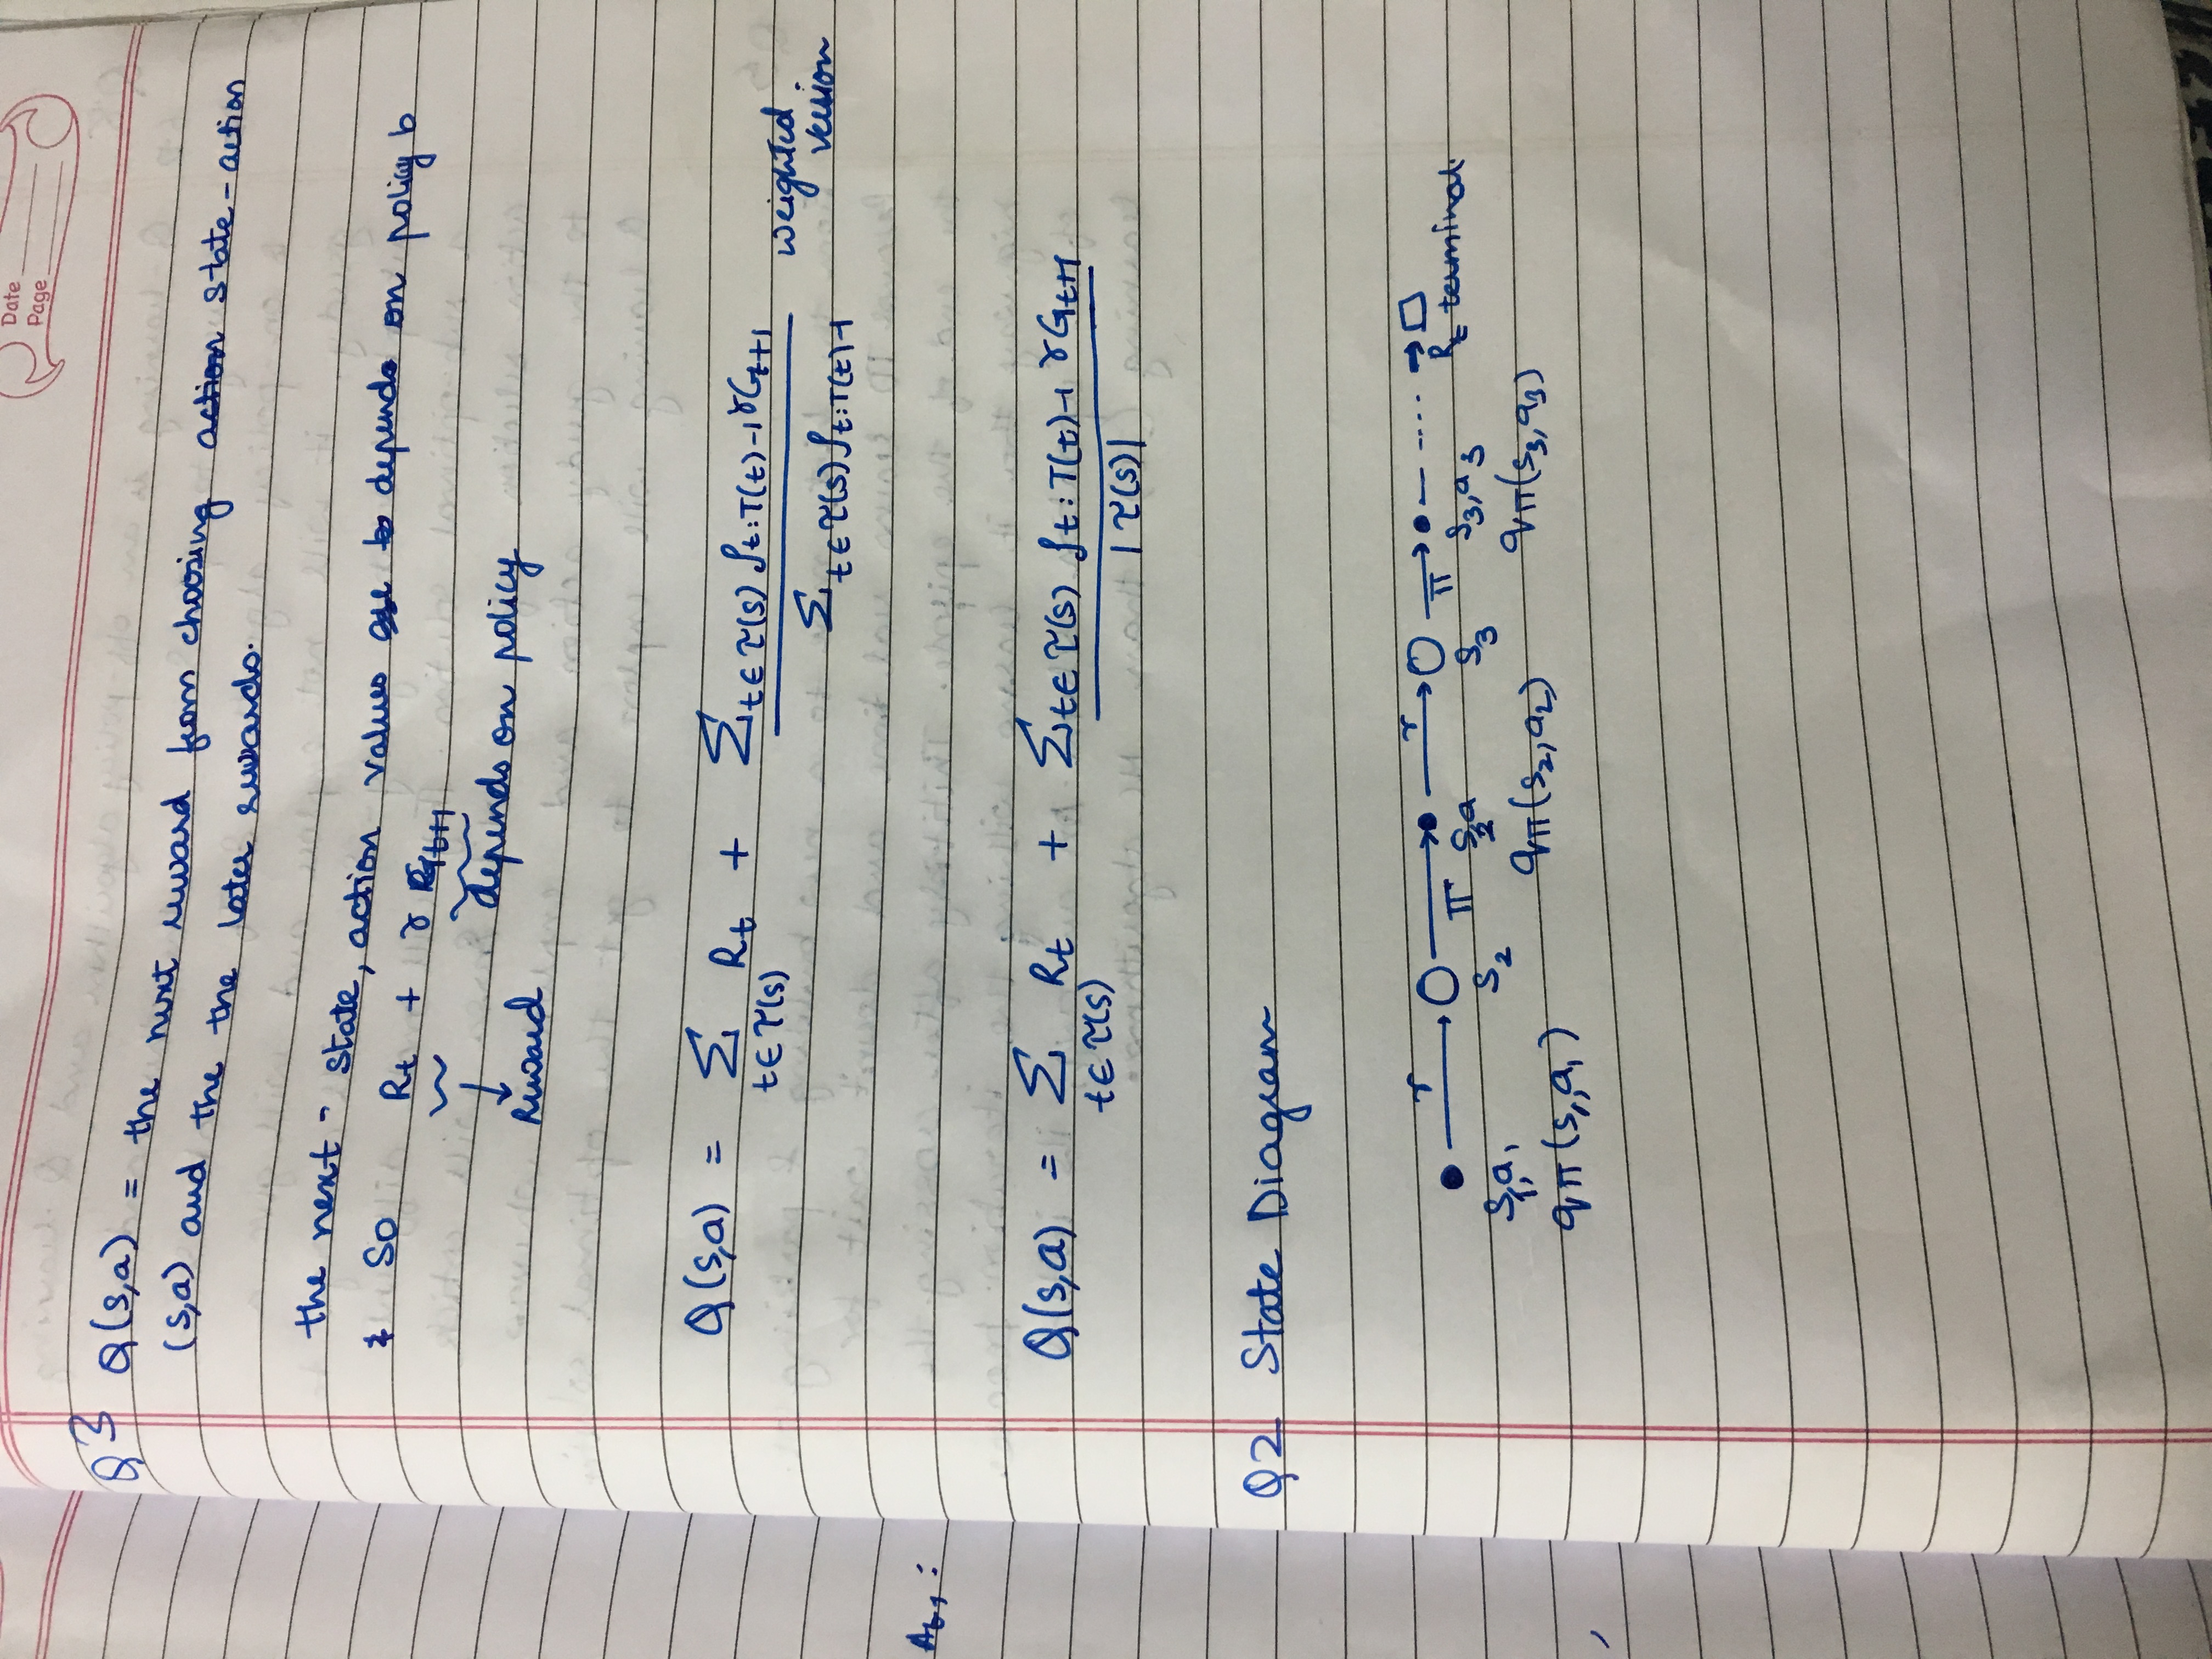 Date
Page
Q3 Q(s,a) = the next reward from choosing action state-action
(s,a) and the the later rewards.
the next - state, action values depends on policy b
& So Rt + γ Gt+1
depends on policy
Reward
Q(s,a) = Σ Rt + Σt∈τ(s) ρt:T(t)-1 γGt+1
t∈τ(s)
Σt∈τ(s) ρt:T(t)-1
weighted
version
At, :
Q(s,a) = Σ Rt + Σt∈τ(s) ρt:T(t)-1 γGt+1
t∈τ(s)
|τ(s)|
Q2 State Diagram
r π r π
s1,a1 s2 s2,a s3 s3,a3 Rt terminal
qπ(s1,a1) qπ(s2,a2) qπ(s3,a3)